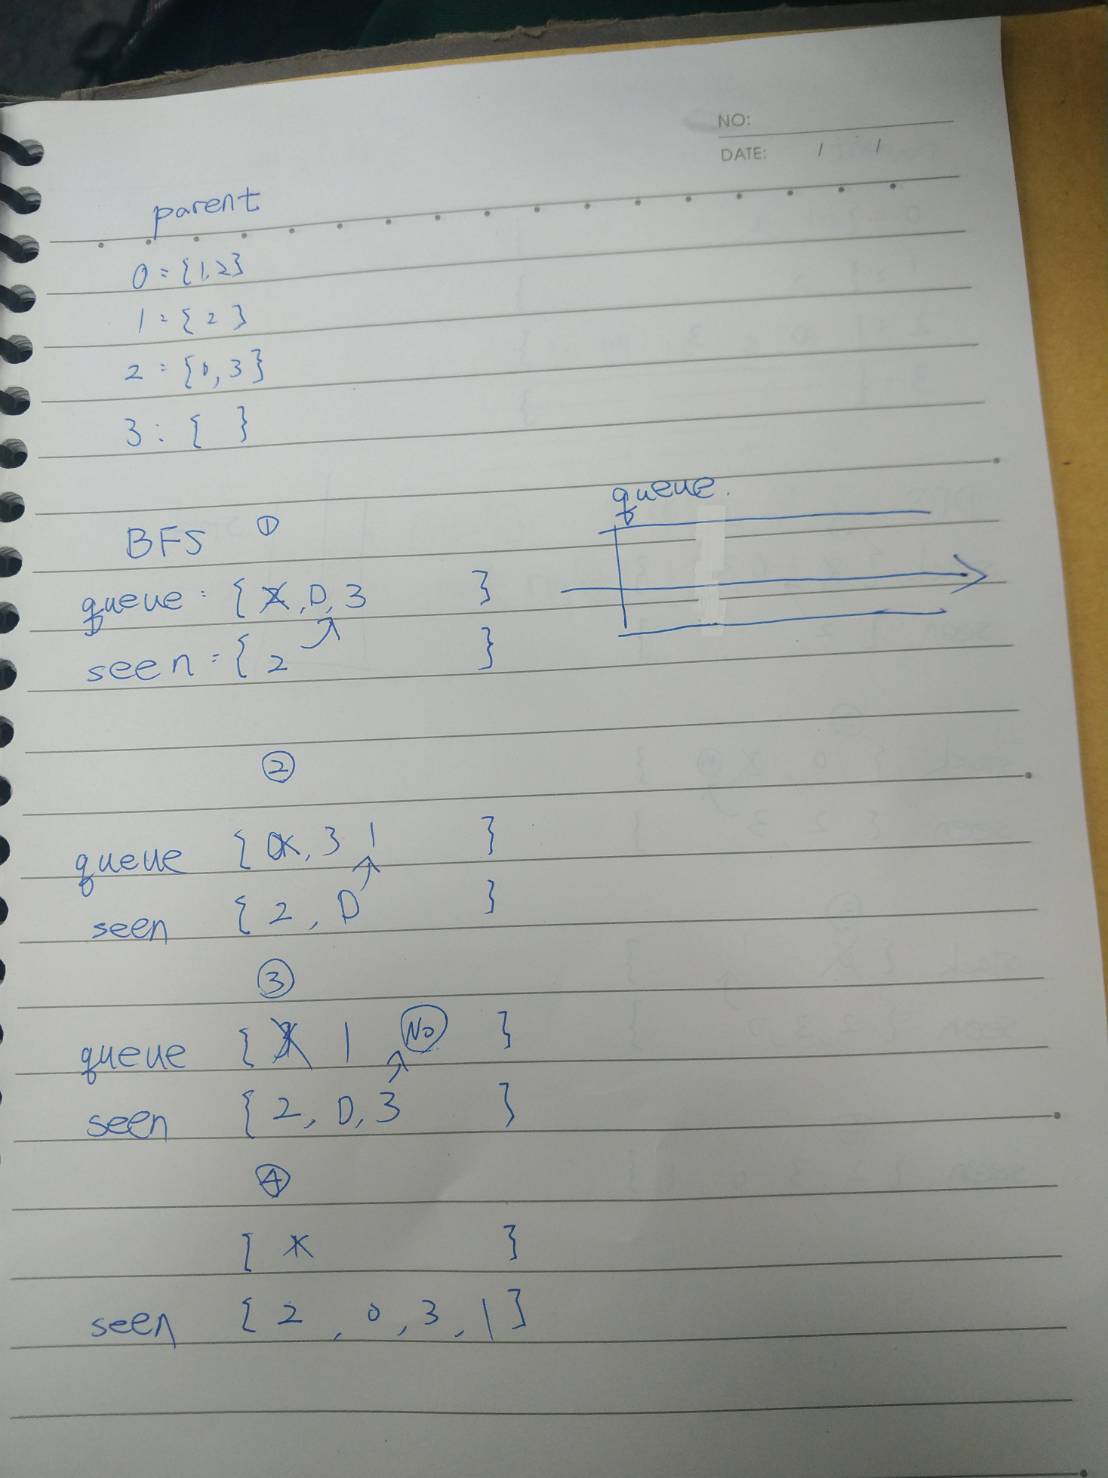 NO:
DATE: / /
parent
0 = {1,2}
1 = {2}
2 = {0,3}
3: { }
queue.
BFS ①
queue: {X,0,3 }
seen = {2 }
②
queue { 0X, 3 1 }
seen {2, 0 }
③
queue { X 1 No }
seen {2, 0, 3 }
④
{ X }
seen {2, 0, 3, 1}